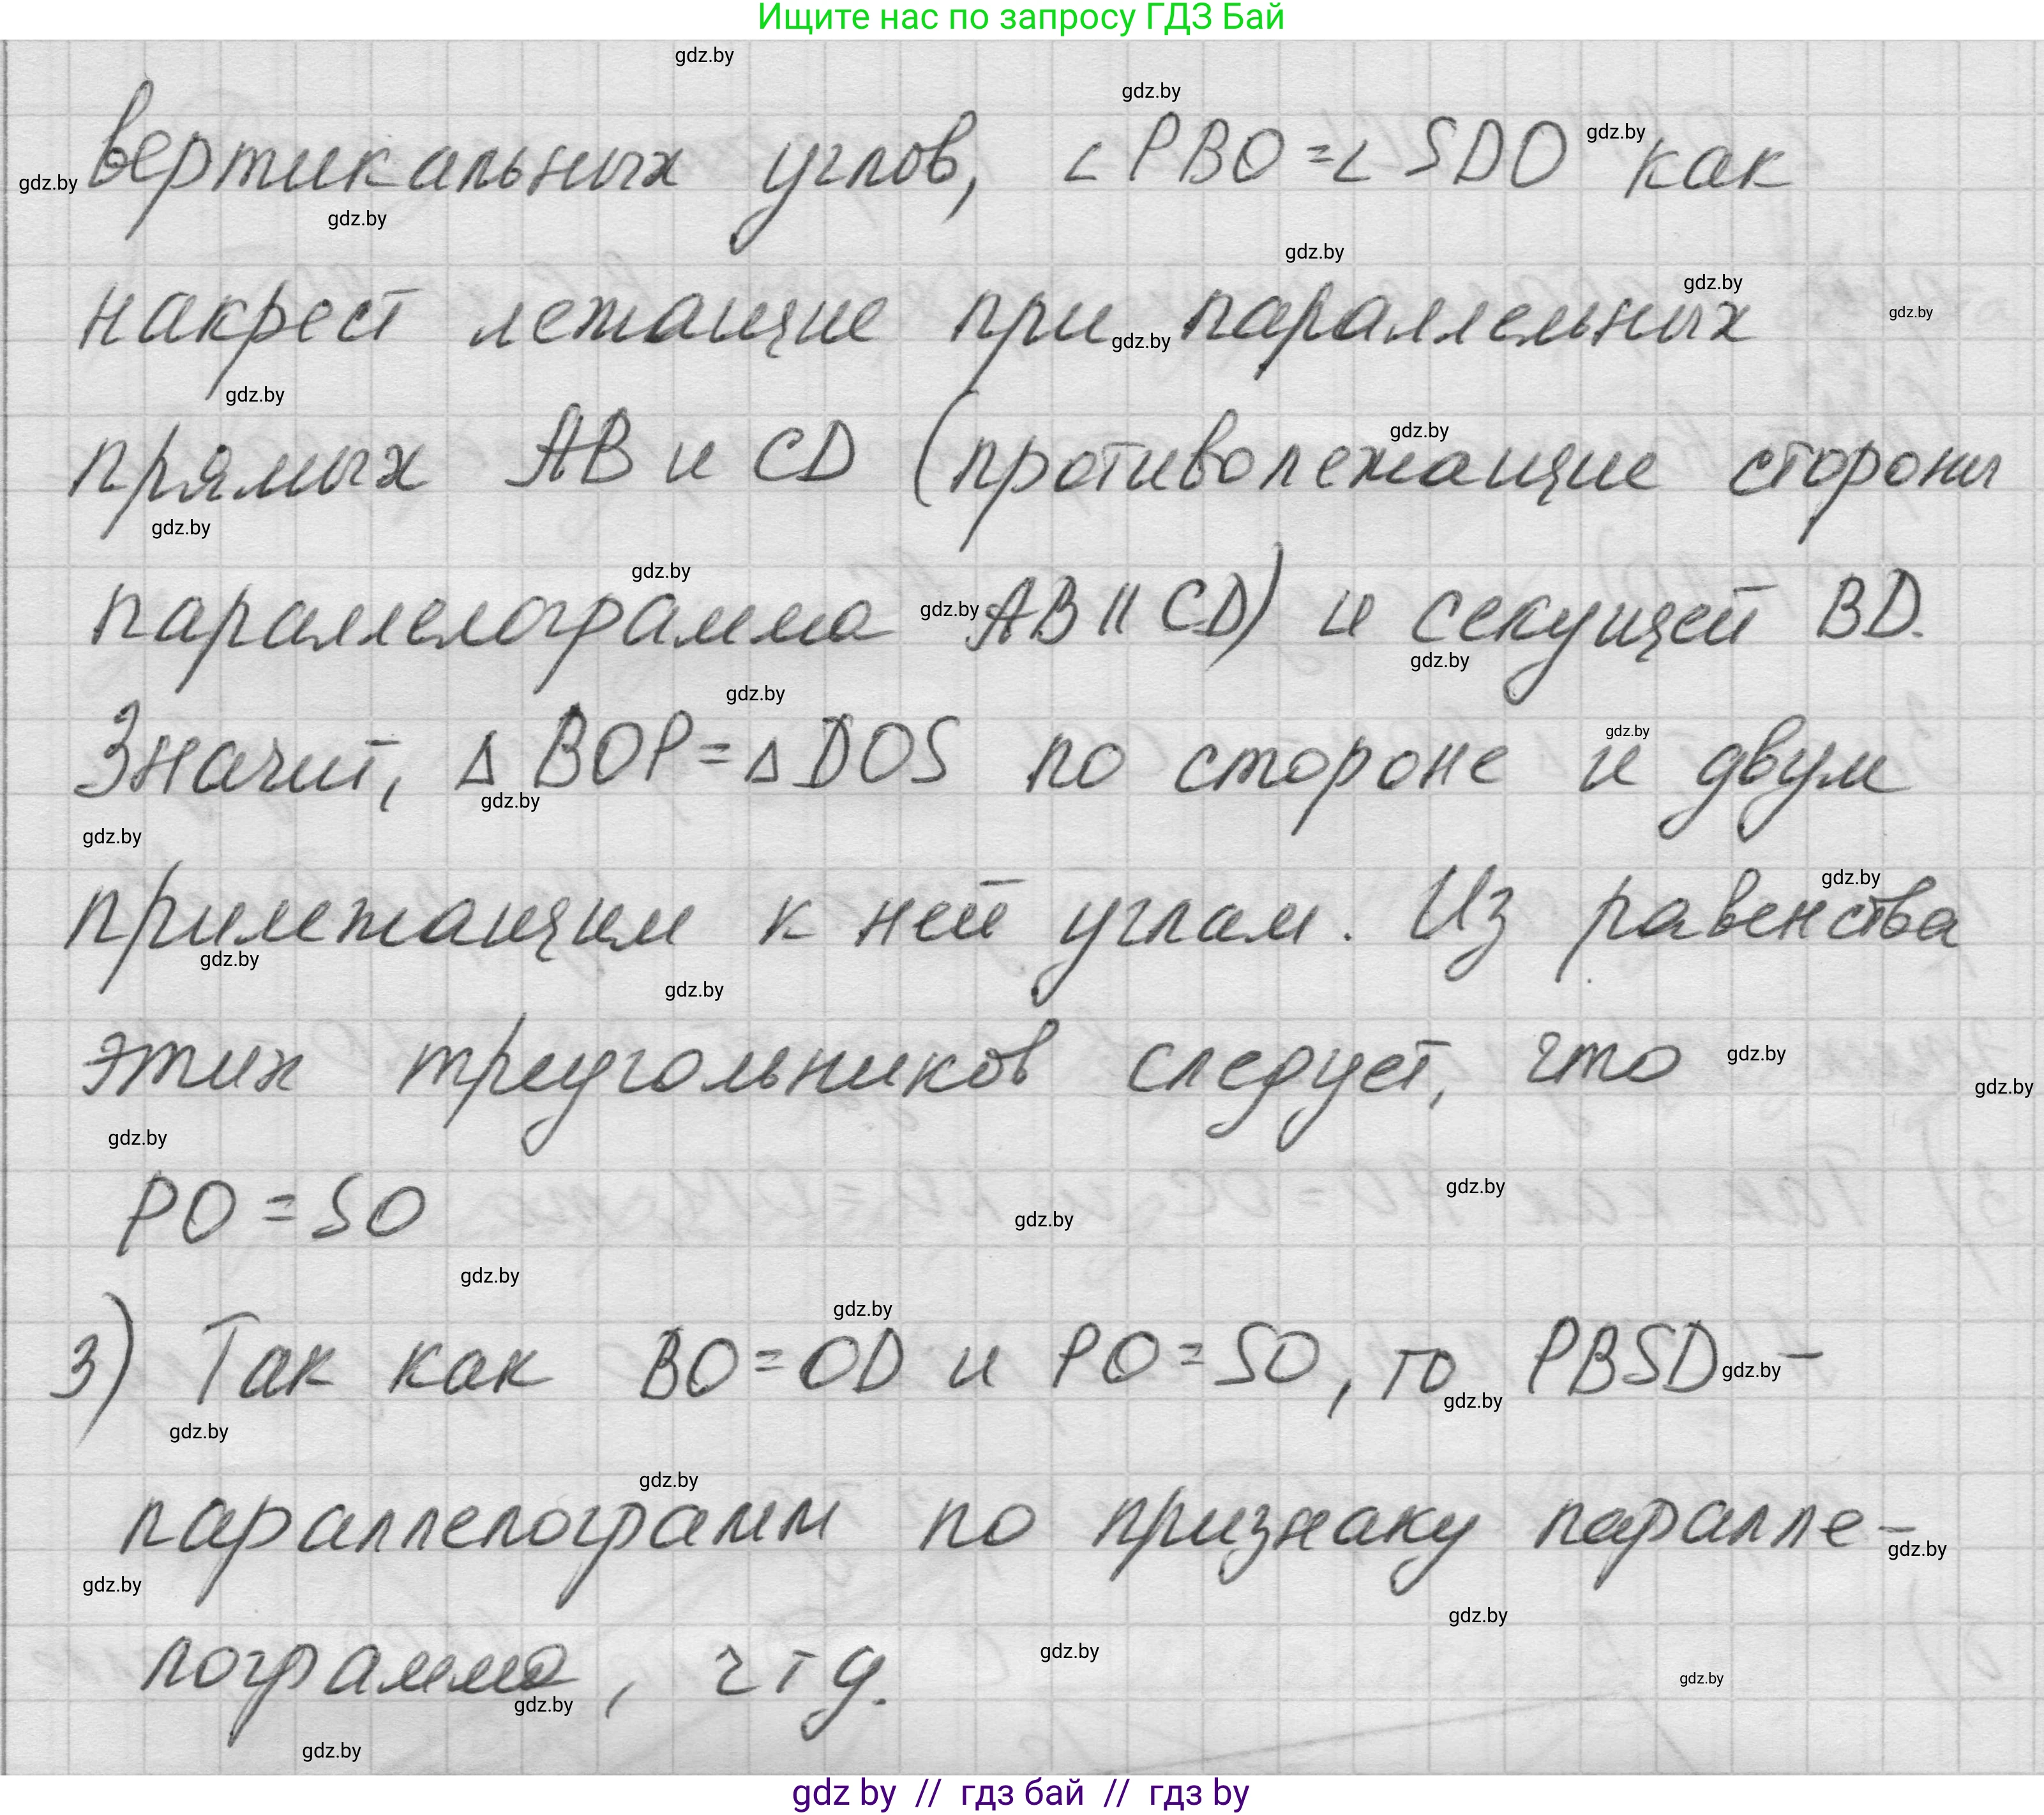 Ищите нас по запросу ГДЗ Бай
вертикальных углов, ∠PBO=∠SDO как
накрест лежащие при параллельных
прямых AB и CD (противолежащие стороны
параллелограмма AB || CD) и секущей BD.
Значит, △BOP=△DOS по стороне и двум
прилежащим к ней углам. Из равенства
этих треугольников следует, что
PO=SO
3) Так как BO=OD и PO=SO, то PBSD –
параллелограмм по признаку паралле-
лограмма, чтд.
gdz by // гдз бай // гдз by